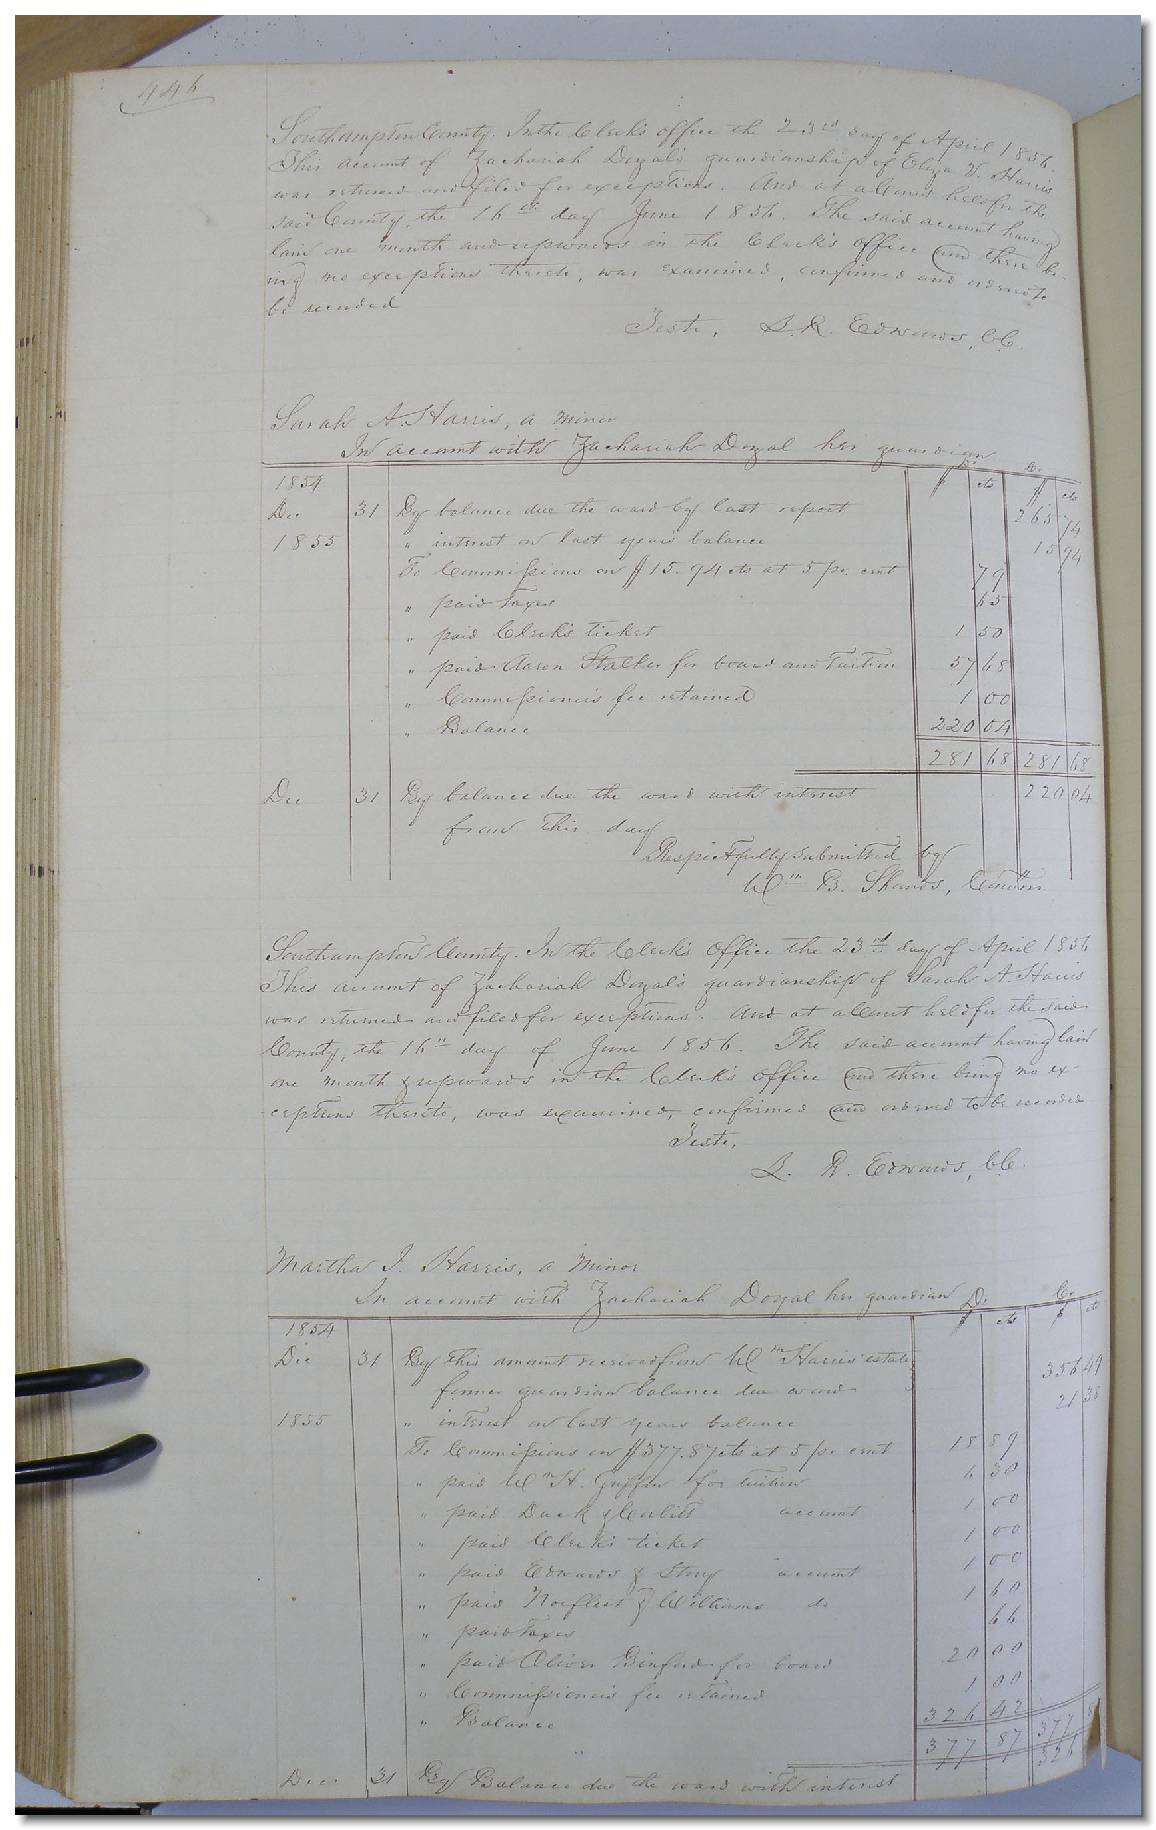 446
Southampton County. In the Clerk's office the 23rd day of April 1856.
This account of Zachariah Doyal's guardianship of Eliza W. Harris
was returned and filed for exceptions. And at a Court held for the
said County, the 16th day June 1856. The said account having
lain one month and upwards in the Clerk's office and there be-
ing no exceptions thereto, was examined, confirmed and ordered to
be recorded
Teste, L. R. Edwards, CC.
Sarah A. Harris, a minor
In account with Zachariah Doyal her guardian
Dr. Cr.
1854 $ cts $ cts
Dec 31 By balance due the ward by last report 265 74
1855 " interest on last years balance 15 94
To Commissions on $15.94 cts at 5 pr. cent 79
" paid Taxes 65
" paid Clerk's ticket 1 50
" paid Aaron Stalker for board and Tuition 57 68
" Commissioner's fee retained 1 00
" Balance 220 04
281 68 281 68
Dec 31 By balance due the ward with interest 220 04
from this day
Respectfully submitted by
Wm B. Shands, Comr
Southampton County. In the Clerk's Office the 23rd day of April 1856
This account of Zachariah Doyal's guardianship of Sarah A. Harris
was returned and filed for exceptions. And at a Court held for the said
County, the 16th day of June 1856. The said account having lain
one month & upwards in the Clerk's office and there being no ex-
ceptions thereto, was examined, confirmed and ordered to be recorded
Teste,
L. R. Edwards, CC.
Martha J. Harris, a minor
In account with Zachariah Doyal her guardian Dr. Cr.
1854 $ cts $ cts
Dec 31 By this amount received from Wm Harris' estate
former guardian balance due ward 356 49
1855 " interest on last years balance 21 38
To Commissions on $377.87 cts at 5 pr cent 18 89
" paid Wm H. Griffin for tuition 6 30
" paid Duck & Corbitt account 1 00
" paid Clerk's ticket 1 00
" paid Edwards & Story account 1 00
" paid Norfleet & Williams do 1 60
" paid Taxes 66
" paid Oliver Binford for board 20 00
" Commissioner's fee retained 1 00
" Balance 326 42
377 87 377 8
Dec 31 By Balance due the ward with interest 326